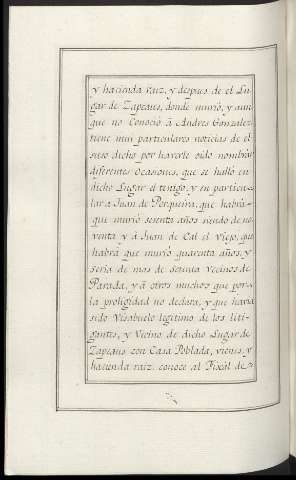 y hacienda raiz, y despues de el Lu-
gar de Zapeaus, donde murió, y aun
que no Conoció á Andres Gonzalez
tiene mui particulares noticias de el
suso dicho por haverle oido nombrar
diferentes ocasiones, que se halló en
dicho Lugar el testigo, y en particu-
lar a Juan de Perqueira, que habrá
que murió setenta años siendo de no-
venta y á Juan de Cal el Viejo, que
habrá que murió quarenta años, y
seria de mas de setenta Vecinos de
Parada, y á otros muchos que por
la proligidad no declara, y que havia
sido Visabuelo legitimo de los liti-
gantes, y Vicino de dicho Lugar de
Zapeaus con Casa Poblada, vienes, y
hacienda raiz, conoce al Fiscál de